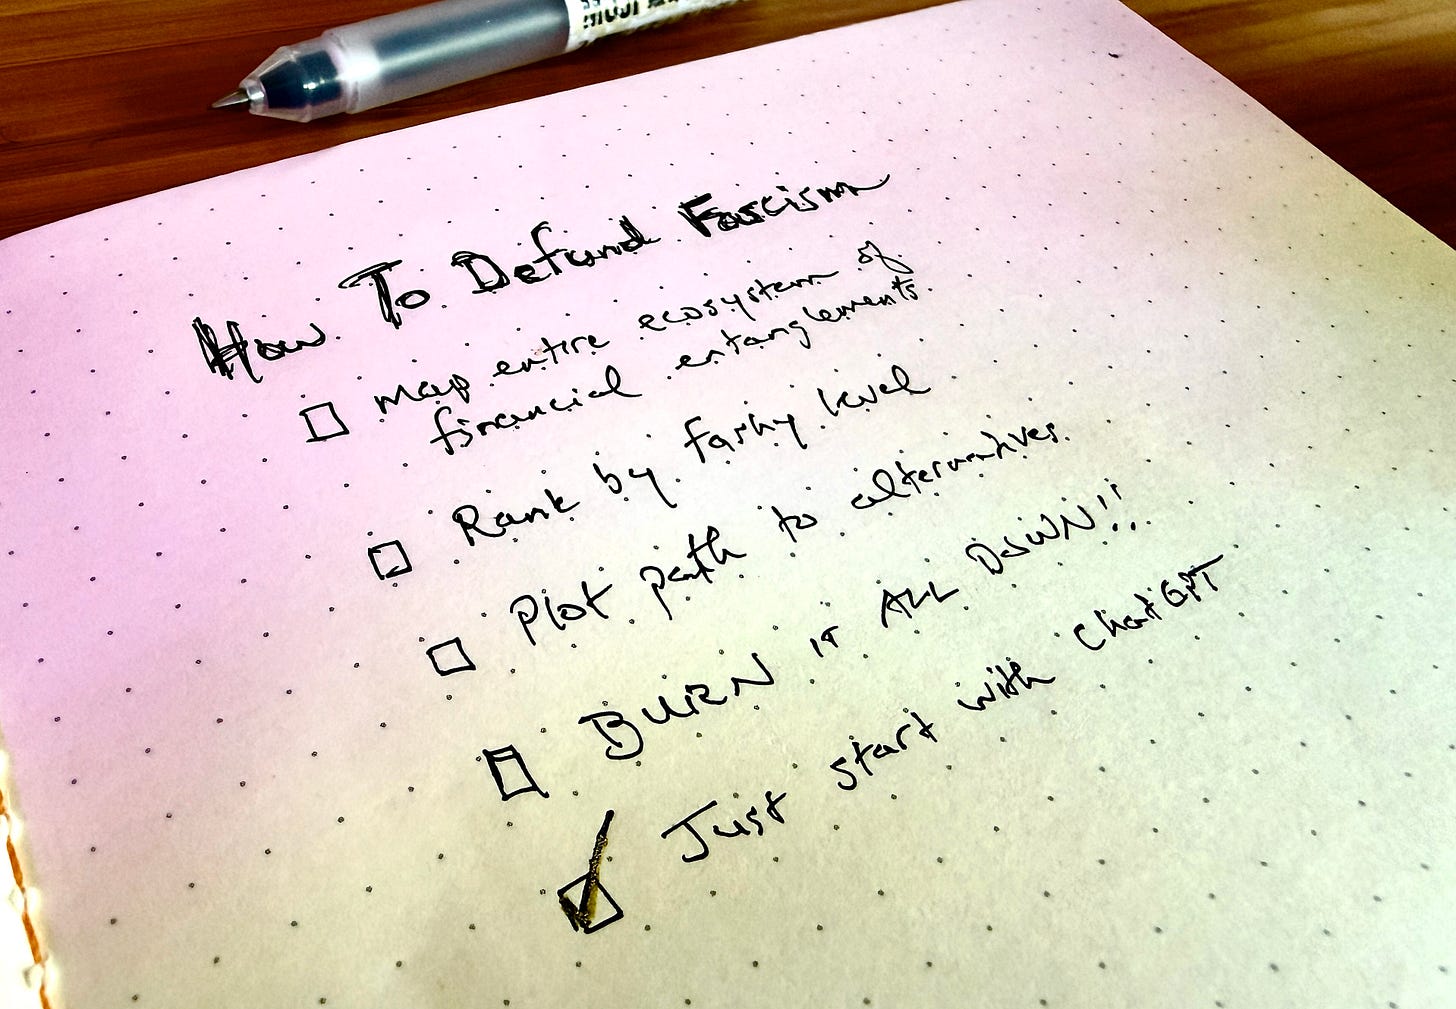 muji
How To Defund Fascism
Map entire ecosystem of
financial entanglements.
Rank by fashy level
Plot path to alternatives.
BURN IT ALL DOWN!!
Just start with ChatGPT